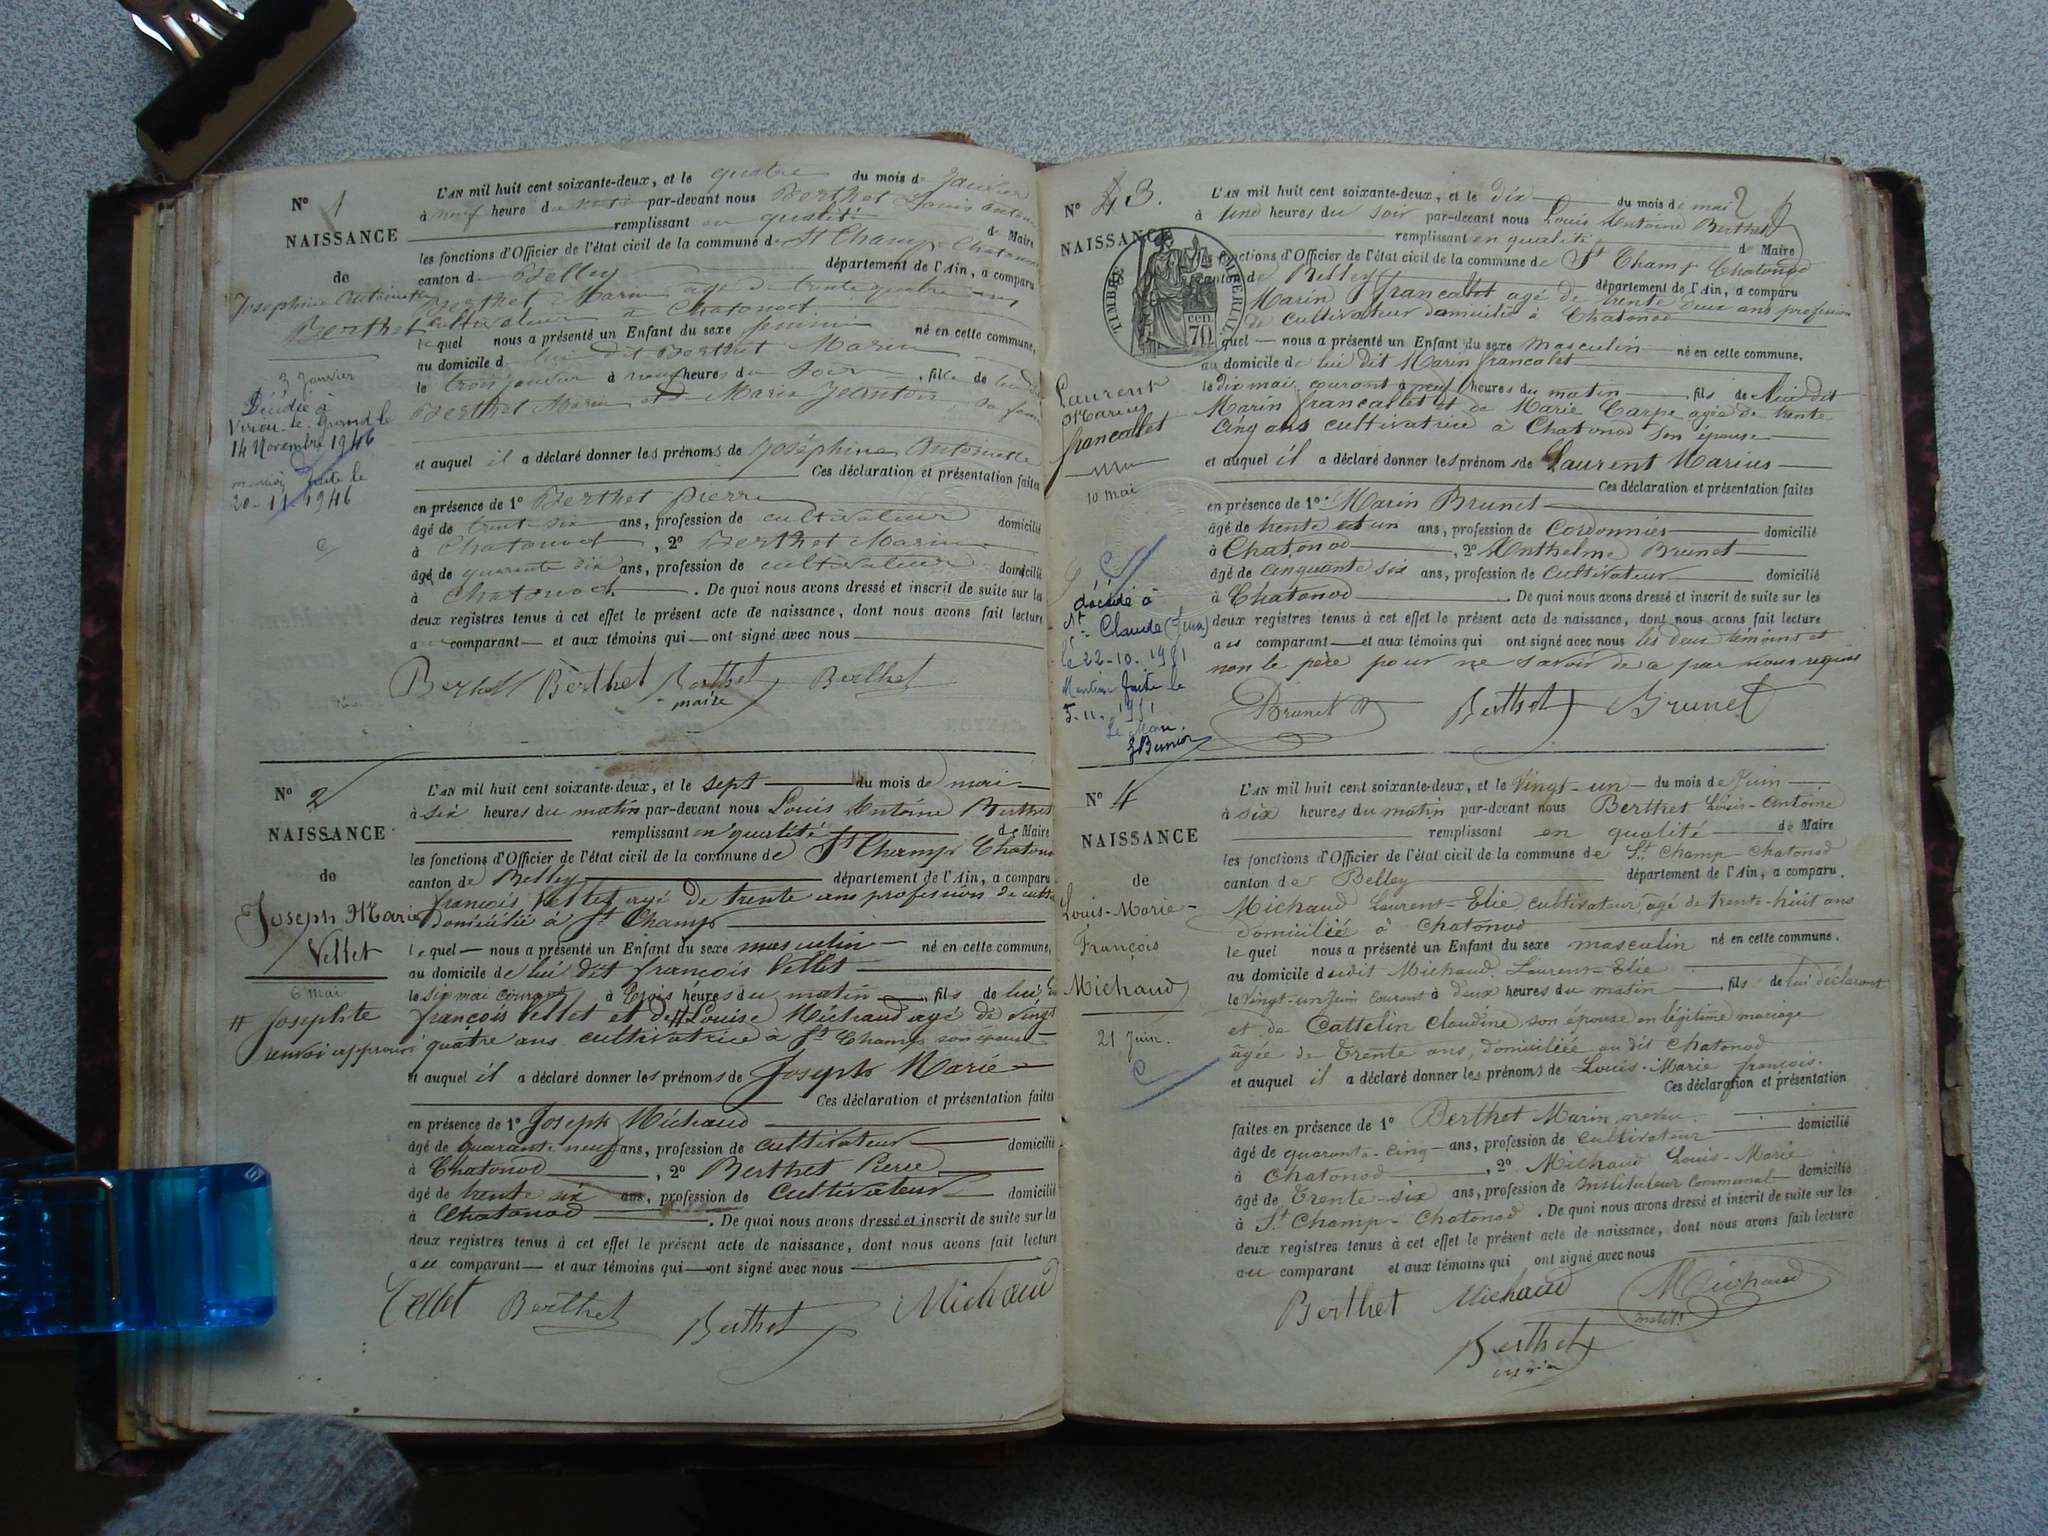 N° 1
NAISSANCE
de
Joséphine Antoinette
Berthet
3 Janvier
Décédée à
Virieu-le-Grand le
14 Novembre 1946
mention faite le
20-11-1946
L'AN mil huit cent soixante-deux, et le quatre du mois de Janvier
à neuf heure du par-devant nous Berthet Louis Antoine
remplissant en qualité de Maire
les fonctions d'Officier de l'état civil de la commune de St Champ Chatonod
canton de Belley département de l'Ain, a comparu
Berthet Marin agé de trente quatre ans
cultivateur à Chatonod
lequel nous a présenté un Enfant du sexe feminin né en cette commune,
au domicile de lui dit Berthet Marin
le trois janvier à neuf heures du soir, fille de lui dit
Berthet Marin et de Marie Jeantou sa femme
et auquel il a déclaré donner les prénoms de Joséphine Antoinette
Ces déclaration et présentation faites
en présence de 1° Berthet pierre
âgé de trent six ans, profession de cultivateur domicilié
à Chatonod, 2° Berthet Marin
âgé de quarante dix ans, profession de cultivateur domicilié
à Chatonod. De quoi nous avons dressé et inscrit de suite sur les
deux registres tenus à cet effet le présent acte de naissance, dont nous avons fait lecture
au comparant et aux témoins qui ont signé avec nous
Berthet Berthet Berthet Berthet
maire
N° 2
NAISSANCE
de
Joseph Marie
Vellet
6 mai
# Josephte
renvoi approuvé
L'AN mil huit cent soixante-deux, et le sept du mois de mai
à six heures du matin par-devant nous Louis Antoine Berthet
remplissant en qualité de Maire
les fonctions d'Officier de l'état civil de la commune de St Champ Chatonod
canton de Belley département de l'Ain, a comparu
françois Vellet agé de trente ans profession de cult
domicilié à St Champ
lequel nous a présenté un Enfant du sexe masculin né en cette commune,
au domicile de lui dit françois Vellet
le six mai courant à trois heures du matin, fils de lui dit
françois Vellet et de # Louise Michaud agé de vingt
quatre ans cultivatrice à St Champ son épouse
et auquel il a déclaré donner les prénoms de Joseph Marie
Ces déclaration et présentation faites
en présence de 1° Joseph Michaud
âgé de quarante neuf ans, profession de cultivateur domicilié
à Chatonod, 2° Berthet Pierre
âgé de trente six ans, profession de cultivateur domicilié
à Chatonod. De quoi nous avons dressé et inscrit de suite sur les
deux registres tenus à cet effet le présent acte de naissance, dont nous avons fait lecture
au comparant et aux témoins qui ont signé avec nous
Vellet Berthet Berthet Michaud
N° 3.
NAISSANCE
TIMBRE IMPÉRIAL
70 cen
Laurent
Marius
francallet
10 mai
décédé à
St Claude (Jura)
le 22-10-1951
Mention faite le
5-11-1951
Le Maire
L'AN mil huit cent soixante-deux, et le dix du mois de mai 2
à une heures du soir par-devant nous Louis Antoine Berthet
remplissant en qualité de Maire
les fonctions d'Officier de l'état civil de la commune de St Champ Chatonod
canton de Belley département de l'Ain, a comparu
Marin francallet agé de trente deux ans profession
de cultivateur domicilié à Chatonod
lequel nous a présenté un Enfant du sexe masculin né en cette commune.
au domicile de lui dit Marin francalet
le dix mai courant à neuf heures du matin, fils de lui dit
Marin francallet et de Marie Carpe agée de trente
cinq ans cultivatrice à Chatonod son épouse
et auquel il a déclaré donner les prénoms de Laurent Marius
Ces déclaration et présentation faites
en présence de 1° Marin Brunet
âgé de trente et un ans, profession de Cordonnier domicilié
à Chatonod, 2° Anthelme Brunet
âgé de cinquante six ans, profession de cultivateur domicilié
à Chatonod. De quoi nous avons dressé et inscrit de suite sur les
deux registres tenus à cet effet le présent acte de naissance, dont nous avons fait lecture
aux comparant et aux témoins qui ont signé avec nous les deux témoins et
non le père pour ne savoir de a par nous requis
Brunet Berthet Brunet
N° 4
NAISSANCE
de
Louis-Marie-
François
Michaud
21 Juin.
L'AN mil huit cent soixante-deux, et le Vingt-un du mois de Juin
à six heures du matin par-devant nous Berthet Louis-Antoine
remplissant en qualité de Maire
les fonctions d'Officier de l'état civil de la commune de St Champ-Chatonod
canton de Belley département de l'Ain, a comparu.
Michaud Laurent-Elie, cultivateur, agé de trente-huit ans
domicilié à Chatonod
lequel nous a présenté un Enfant du sexe masculin né en cette commune.
au domicile dudit Michaud Laurent-Elie
le vingt-un Juin courant à deux heures du matin, fils de lui déclarant
et de Cattelin Claudine, son épouse en légitime mariage
âgée de Trente ans, domiciliée au dit Chatonod
et auquel il a déclaré donner les prénoms de Louis-Marie françois.
Ces déclaration et présentation
faites en présence de 1° Berthet Marin, neveu
âgé de quarante-cinq ans, profession de cultivateur domicilié
à Chatonod, 2° Michaud Louis-Marie
âgé de Trente-six ans, profession de Instituteur Communal domicilié
à St Champ-Chatonod. De quoi nous avons dressé et inscrit de suite sur les
deux registres tenus à cet effet le présent acte de naissance, dont nous avons fait lecture
au comparant et aux témoins qui ont signé avec nous
Berthet Michaud Michaud
instit.
Berthet